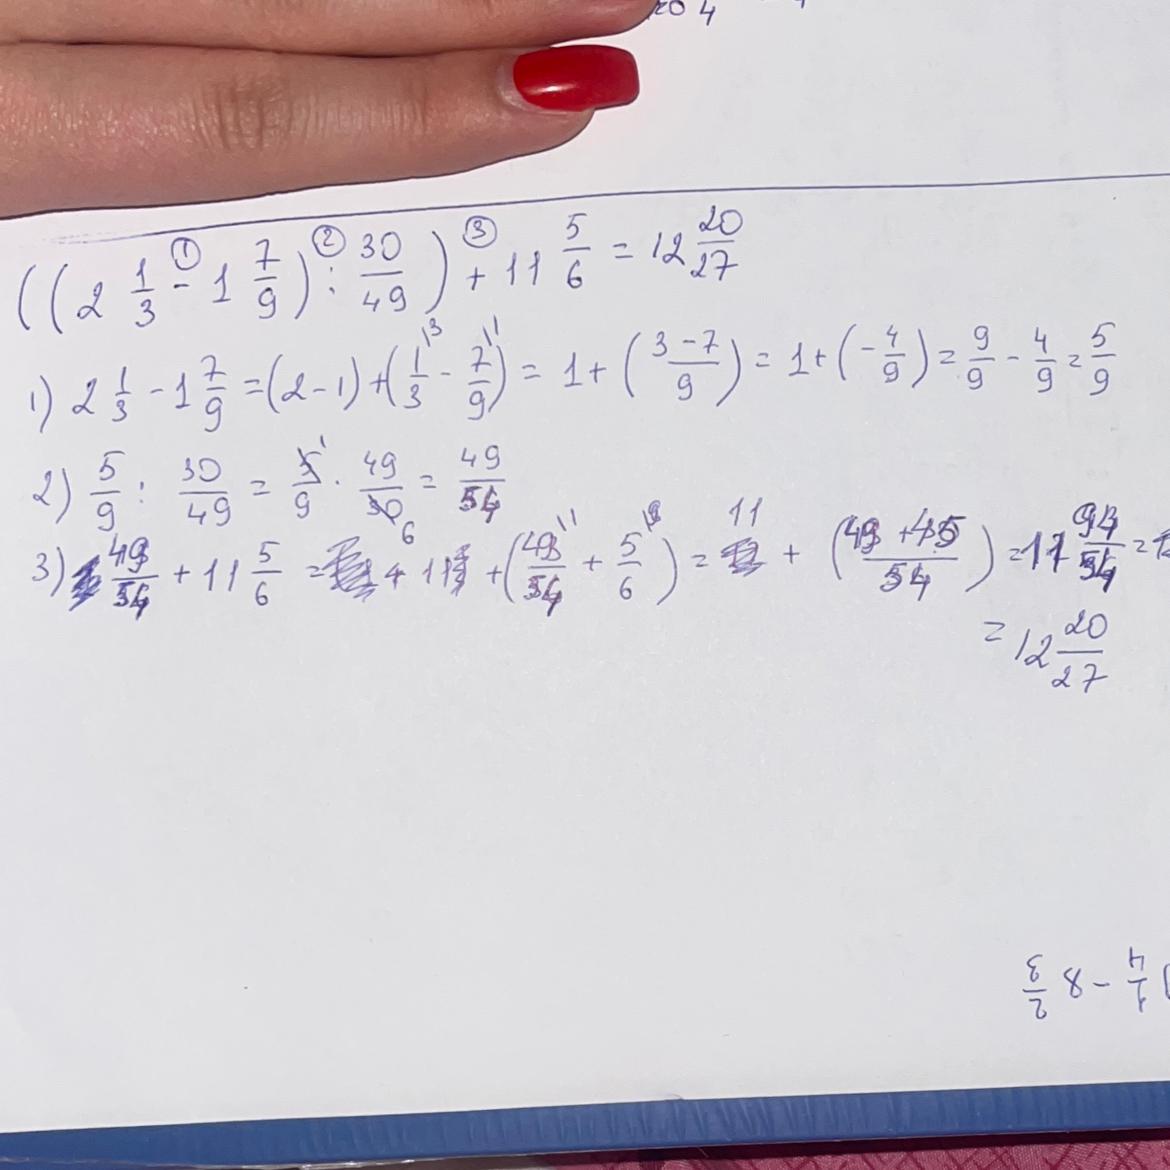 20 4
((2 1/3 - 1 7/9) : 30/49) + 11 5/6 = 12 20/27
1) 2 1/3 - 1 7/9 = (2 - 1) + (1/3 - 7/9) = 1 + (3 - 7/9) = 1 + (- 4/9) = 9/9 - 4/9 = 5/9
2) 5/9 : 30/49 = 5/9 · 49/30 = 49/54
3) 49/54 + 11 5/6 = + 11 + (49/54 + 5/6) = 11 + (49 + 45/54) = 11 94/54 =
= 12 20/27
1/4 - 8 2/3